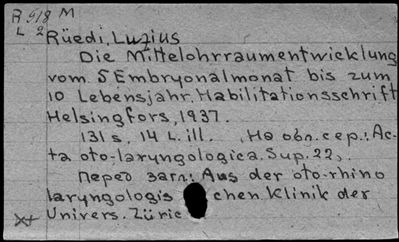 R 518 M
L 2
Rüedi, Luzius
Die Mittelohrraumentwicklung
vom 5 Embryonalmonat bis zum
10 Lebensjahr. Habilitationsschrift
Helsingfors, 1937.
131 s, 14 L. ill. На обл. сер.: Ac-
ta oto-laryngologica. Sup. 22,.
Перед загл: Aus der oto-rhino
laryngologis chen Klinik der
Univers. Züric